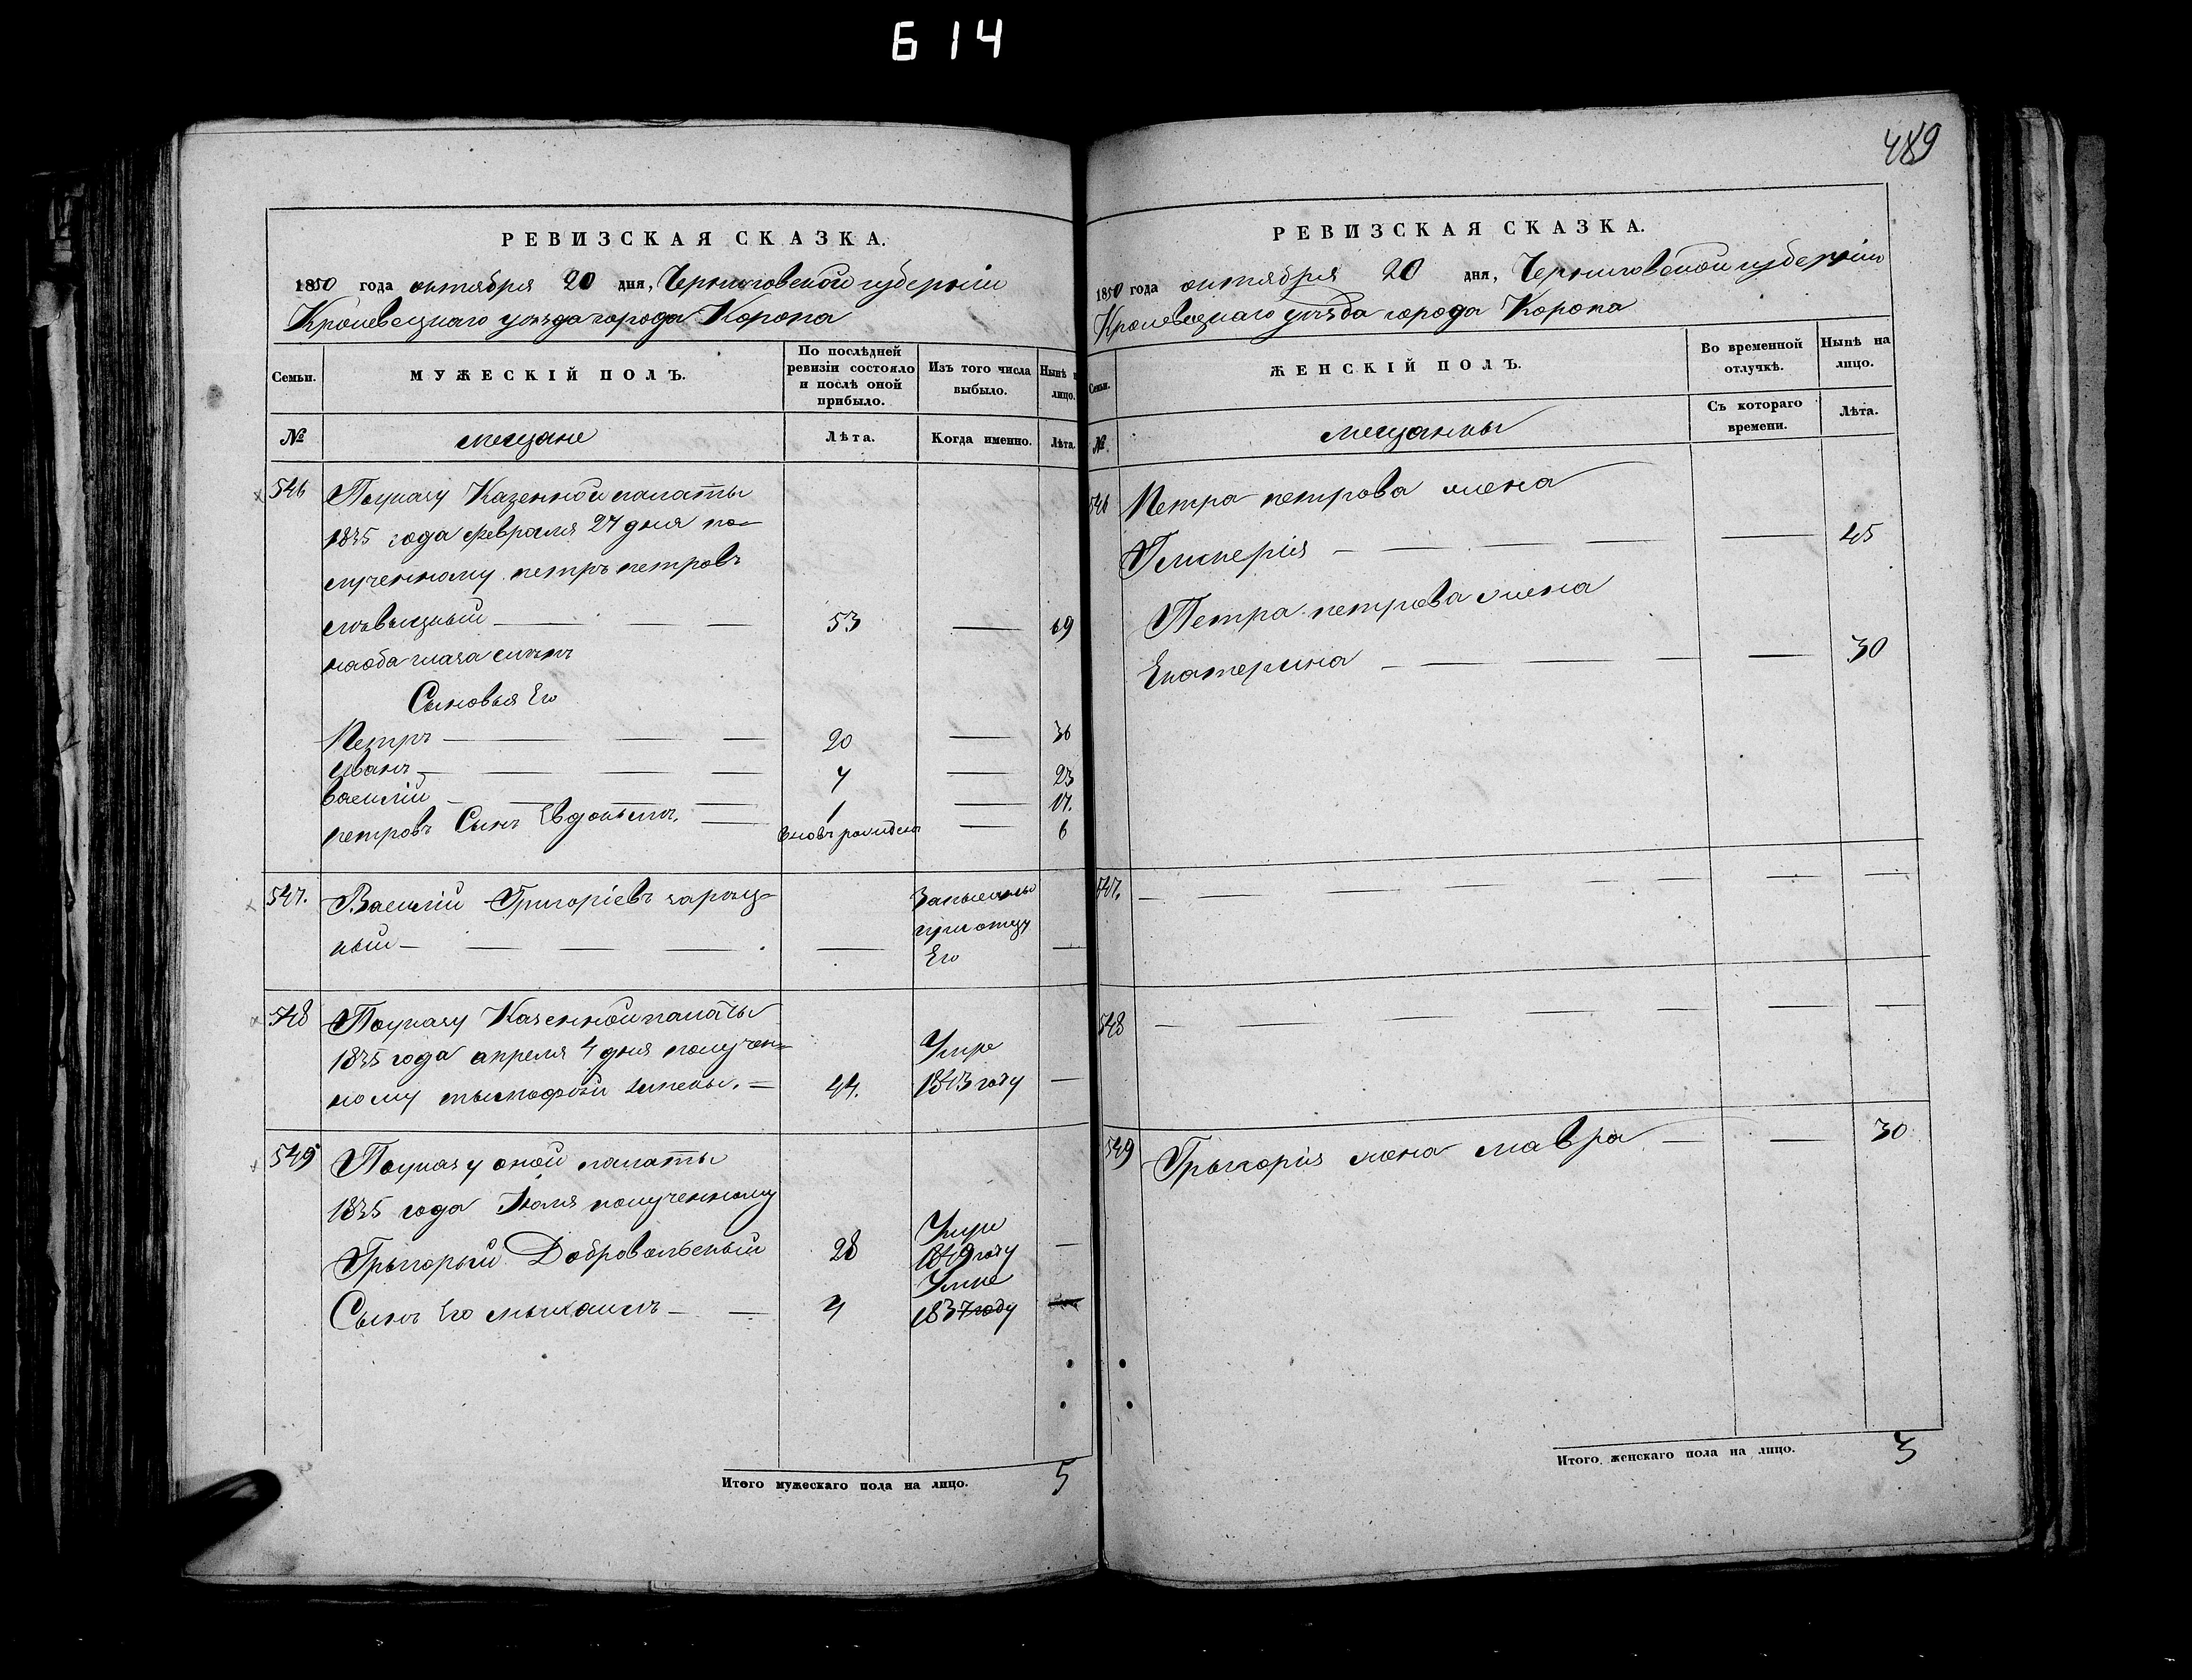 614
489
РЕВИЗСКАЯ СКАЗКА.
1850 года октября 20 дня, Черниговской губерніи
Кролевецкаго уѣзда города Коропа
Семьи.
МУЖЕСКІЙ ПОЛЪ.
По послѣдней ревизіи состояло и послѣ оной прибыло.
Изъ того числа выбыло.
Нынѣ лицо.
№
мещане
Лѣта.
Когда именно.
Лѣта.
546
По указу Казенной палаты
1835 года февраля 27 дня по-
лученному петръ петровъ
53 — 69
на оба глаза слѣпъ
Сыновья Его
Петръ — 20 — 36
Иванъ — 7 — 23
Василій — 1 — 17.
петровъ Сынъ Евдокимъ. — вновь рожденъ — 6
547.
Василій Григоріевъ
ный — — Записанъ при отцу Его —
548
По указу Казенной палаты
1835 года апреля 4 дня получен=
ному тымофѣй = 44. Умре 1843 году —
549
По указу оной палаты
1835 года Июля полученному
Грыгорый Добровольскый 28 Умре 1849 году —
Сынъ Его мыхаилъ — 4 Умре 1837 году
Итого мужескаго пола на лицо. 5
РЕВИЗСКАЯ СКАЗКА.
1850 года октября 20 дня, Черниговской губерніи
Кролевецкаго уѣзда города Коропа
Семьи.
ЖЕНСКІЙ ПОЛЪ.
Во временной отлучкѣ.
Нынѣ на лицо.
№
мещанкы
Съ котораго времени.
Лѣта.
546
Петра петрова жена
Гликерія — — 45
Петра петрова жена
Екатерина — — 30
547. — — —
548 — — —
549 Грыгорія жена мавра — — 30
Итого женскаго пола на лицо. 3